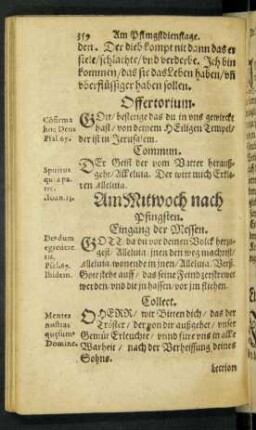 359 Am Pfingstdienstage.
den. Der dieb kompt nit dann das er
stele / schlachte / vnd verderbe. Ich bin
kommen / das sie das Leben haben / vñ
vberflüssiger haben sollen.
Offertorium.
Cõfirma hoc Deus Psal. 67.
GOtt / bestetige das du in vns gewirckt
hast / von deinem HEiligen Tempel /
der ist in Jerusalem.
Commun.
Spiritus qui a patre. Joan. 15.
DEr Geist der vom Vatter herauß-
geht / Alleluia. Der wirt mich Erklä-
ren Alleluia.
Am Mitwoch nach
Pfingsten.
Eingang der Messen.
Deus dum egredereris. Psal. 67. Ibidem.
GOTT da du vor deinem Volck herauß-
giest / Alleluia. jnen den weg machtest /
Alleluia. wonend in jnen / Alleluia. Verß.
Gott stehe auff / das seine Feind zerstrewt
werden / vnd die jn hassen / vor jm fliehen.
Collect.
Mentes nostras quęsum° Domine.
O HERR / wir Bitten dich / das der
Tröster / der von dir außgehet / vnser
Gemüt Erleuchte / vnnd füre vns in alle
Warheit / nach der Verheissung deines
Sohns.
Lection